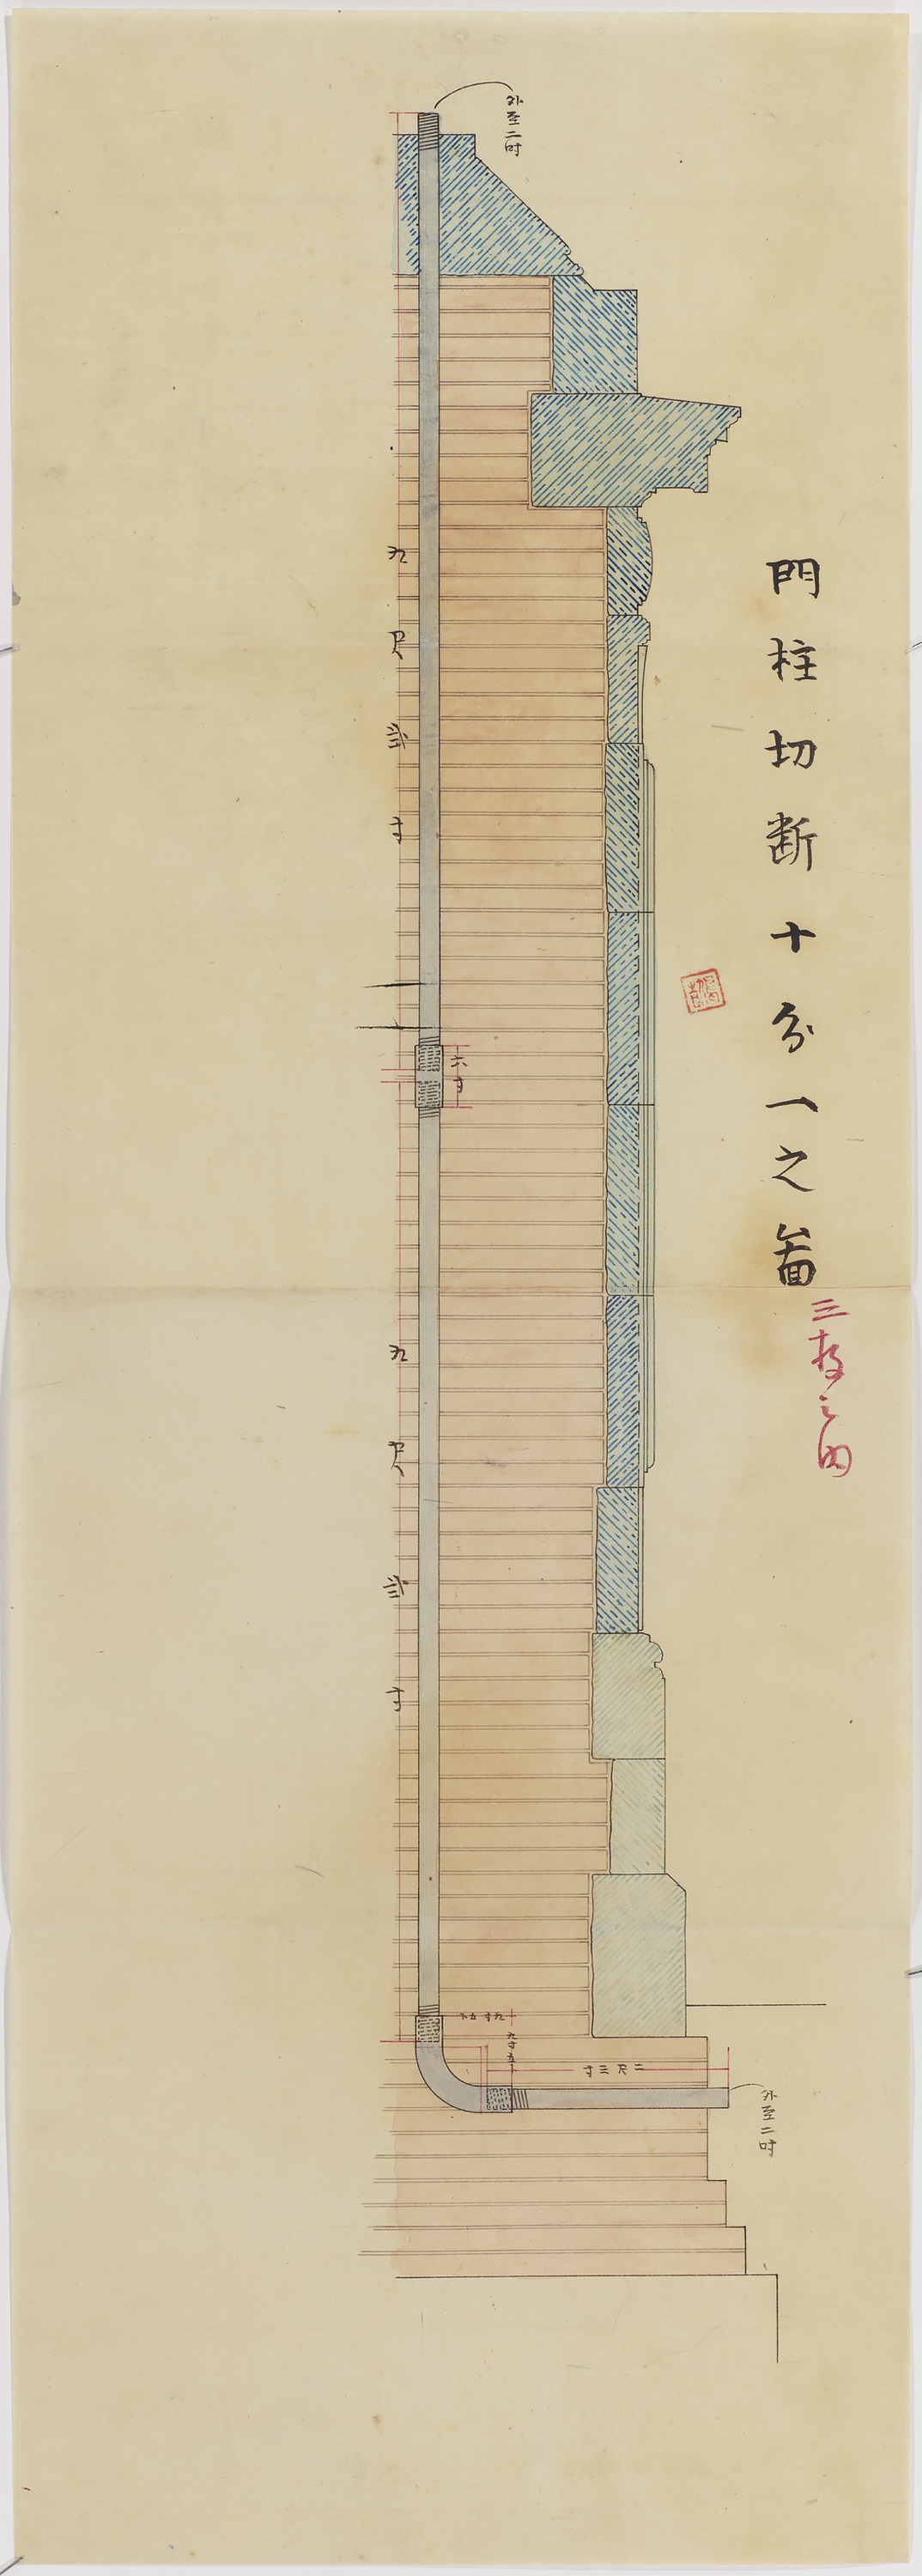 門柱切断十分一之啚
三枚之内
外至二吋
九尺弐寸
六寸
九尺弐寸
九寸五卜
九寸五卜
二尺三寸
外至二吋